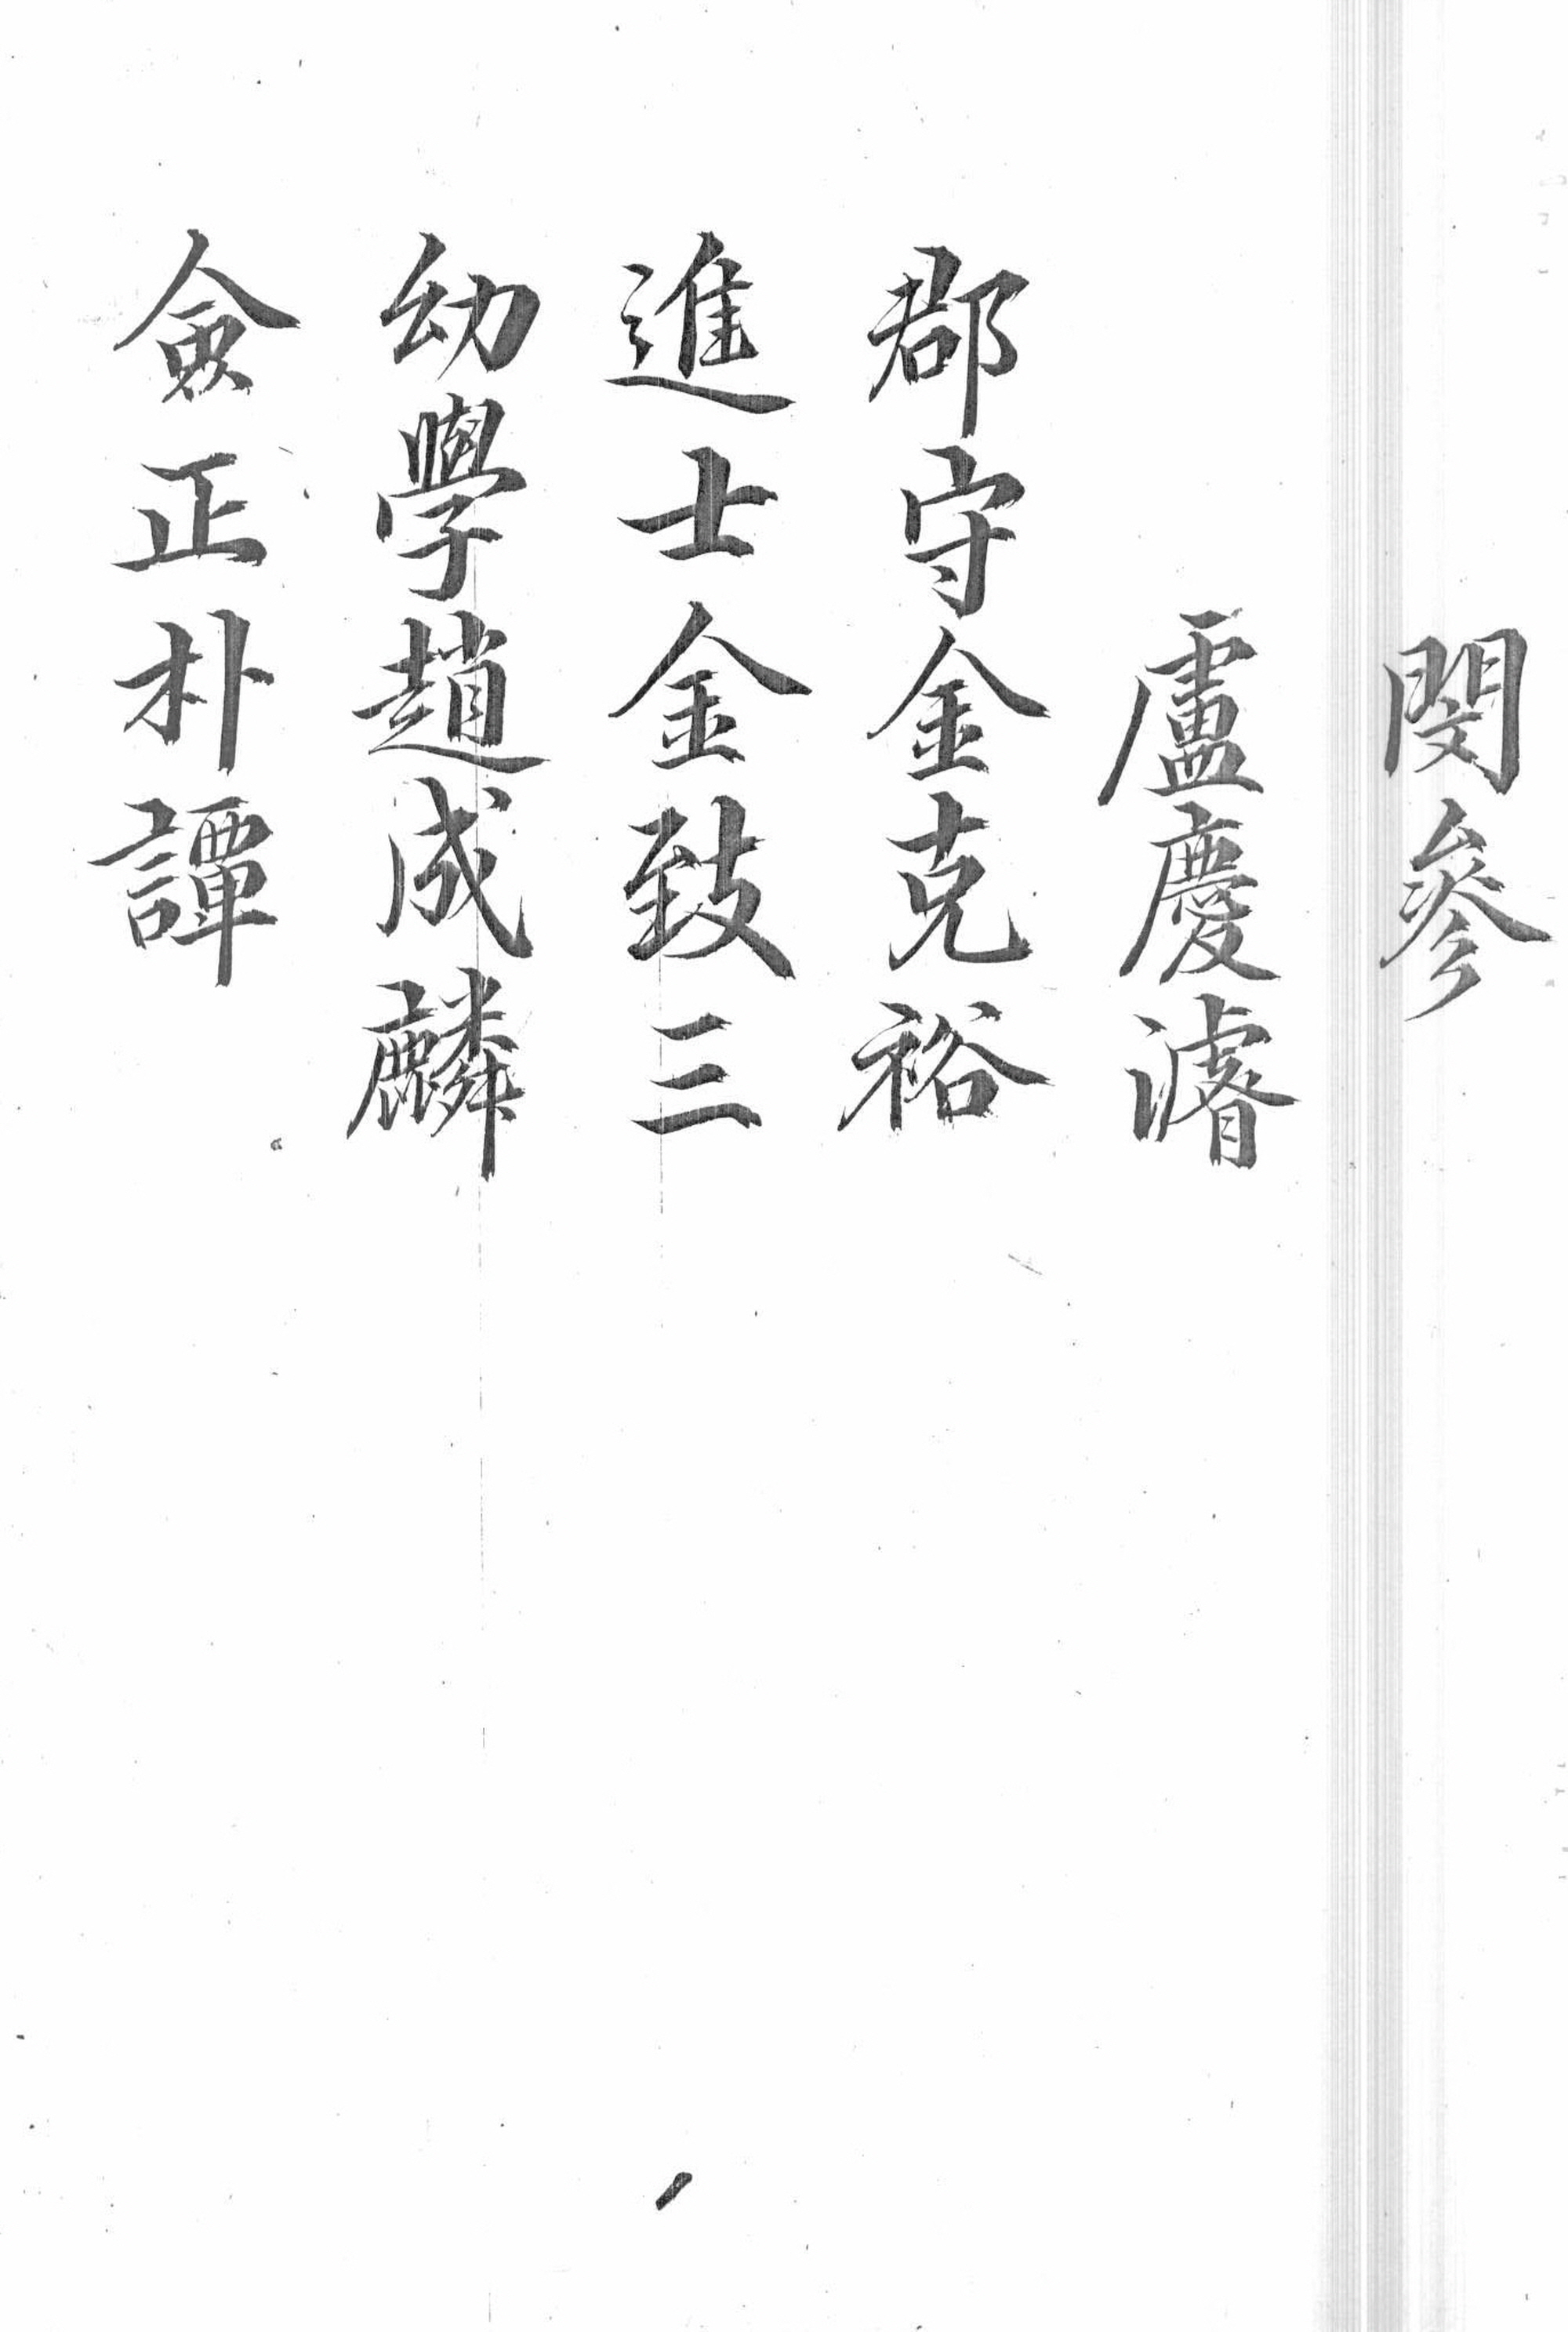 閔參
盧慶濬
郡守金克裕
進士金致三
幼學趙成麟
僉正朴譚